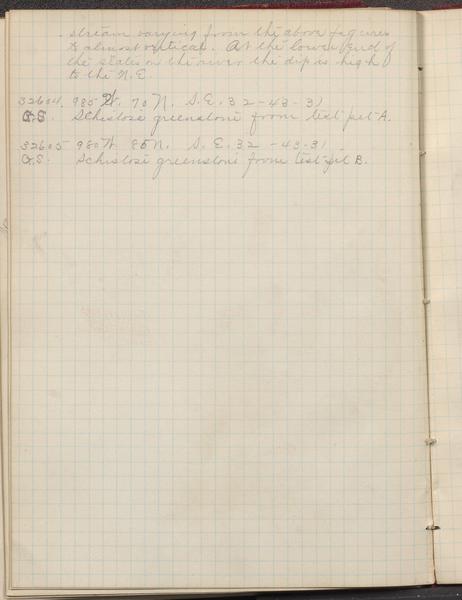 stream varying from the above figures
to almost vertical. At the lower end of
the slates on the river the dip is high
to the N.E.
32604. 985 W. 70 N. S.E. 32-43-31
G.S. Schistose greenstone from test pit A.
32605 980 W 85 N. S.E. 32-43-31
G.S. Schistose greenstone from test pit B.